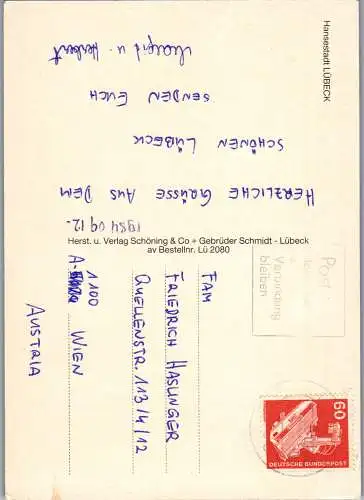 Hansestadt LÜBECK
1984 09 12.
HERZLICHE GRÜSSE AUS DEM
SCHÖNEN LÜBECK
SENDEN EUCH
u. Herbert
Herst. u. Verlag Schöning & Co + Gebrüder Schmidt - Lübeck
av Bestellnr. Lü 2080
Post
Verbindung
bleiben
60
DEUTSCHE BUNDESPOST
FAM
FRIEDRICH HASLINGER
QUELLENSTR. 113/4/12
A-
1100 WIEN
AUSTRIA